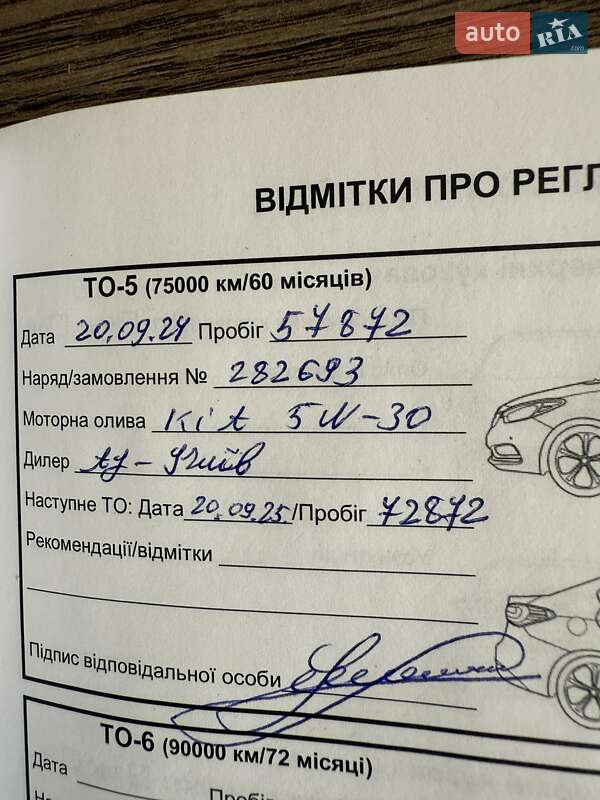 auto RIA.com
ВІДМІТКИ ПРО РЕГЛ
ТО-5 (75000 км/60 місяців)
Дата 20.09.24 Пробіг 57872
Наряд/замовлення № 282693
Моторна олива Kit 5W-30
Дилер
Наступне ТО: Дата 20.09.25/Пробіг 72872
Рекомендації/відмітки
Підпис відповідальної особи
ТО-6 (90000 км/72 місяці)
Дата
Пробіг